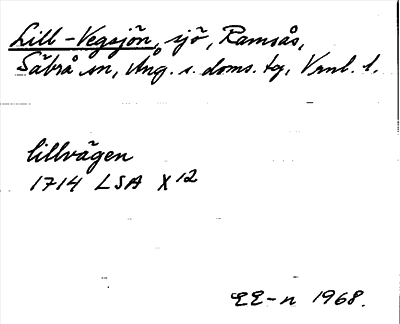 Lill-Vegsjön, sjö, Ramsås,
Säbrå sn, Ång. s. doms. tg, Vrnl. l.
lillvägen
1714 LSA X12
EE-n 1968.